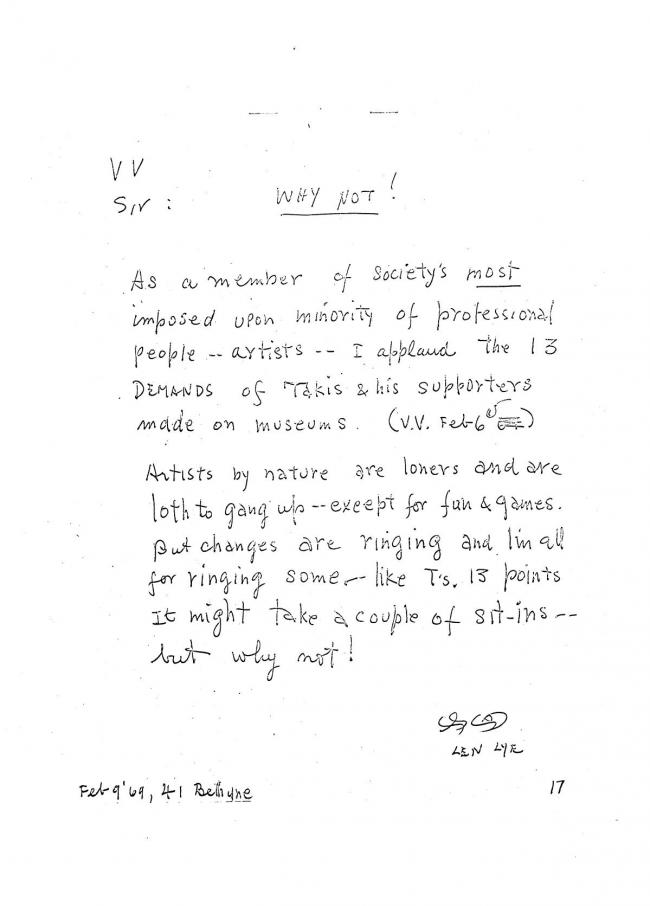 VV
Sir :
WHY NOT!
As a member of society's most
imposed upon minority of professional
people -- artists -- I applaud the 13
DEMANDS of Takis & his supporters
made on museums. (V.V. Feb 6)
Artists by nature are loners and are
loth to gang up -- except for fun & games.
But changes are ringing and I'm all
for ringing some -- like T's. 13 points
It might take a couple of sit-ins --
but why not!
LEN LYE
Feb 9 '69, 41 Bethune
17